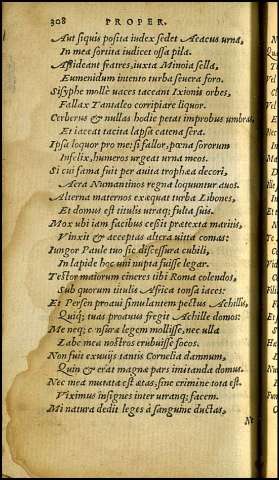 308 PROPER.
Aut siquis posita iudex sedet Aeacus urna,
In mea sortita iudicet ossa pila.
Assideant fratres, iuxta Minoia sella,
Eumenidum intento turba seuera foro.
Sisyphe mole uaces taceant Ixionis orbes,
Fallax Tantaleo corripiare liquor.
Cerberus & nullas hodie petat improbus umbras,
Et iaceat tacita lapsa catena sera.
Ipsa loquor pro me: si fallor, poena sororum
Infelix, humeros urgeat urna meos.
Si cui fama fuit per auita trophaea decori,
Aera Numantinos regna loquuntur auos.
Alterna maternos exaequat turba Libones,
Et domus est titulis utraq; fulta suis.
Mox ubi iam facibus cessit praetexta maritis,
Vinxit & acceptas altera uitta comas:
Iungor Paule tuo sic discessura cubili,
In lapide hoc uni nupta fuisse legar.
Testor maiorum cineres tibi Roma colendos,
Sub quorum titulis Africa tonsa iaces:
Et Persen proaui simulantem pectus Achillis,
Quiq; tuas proauus fregit Achille domos:
Me neq; censura legem mollisse, nec ulla
Labe mea nostros erubuisse focos.
Non fuit exuuijs tantis Cornelia damnum,
Quin & erat magnae pars imitanda domus.
Nec mea mutata est aetas, sine crimine tota est.
Viximus insignes inter utranq; facem.
Mi natura dedit leges à sanguine ductas,
Ne